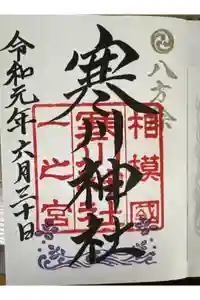 八方除
寒川神社
相模國
寒川神社
一之宮
令和元年六月三十日